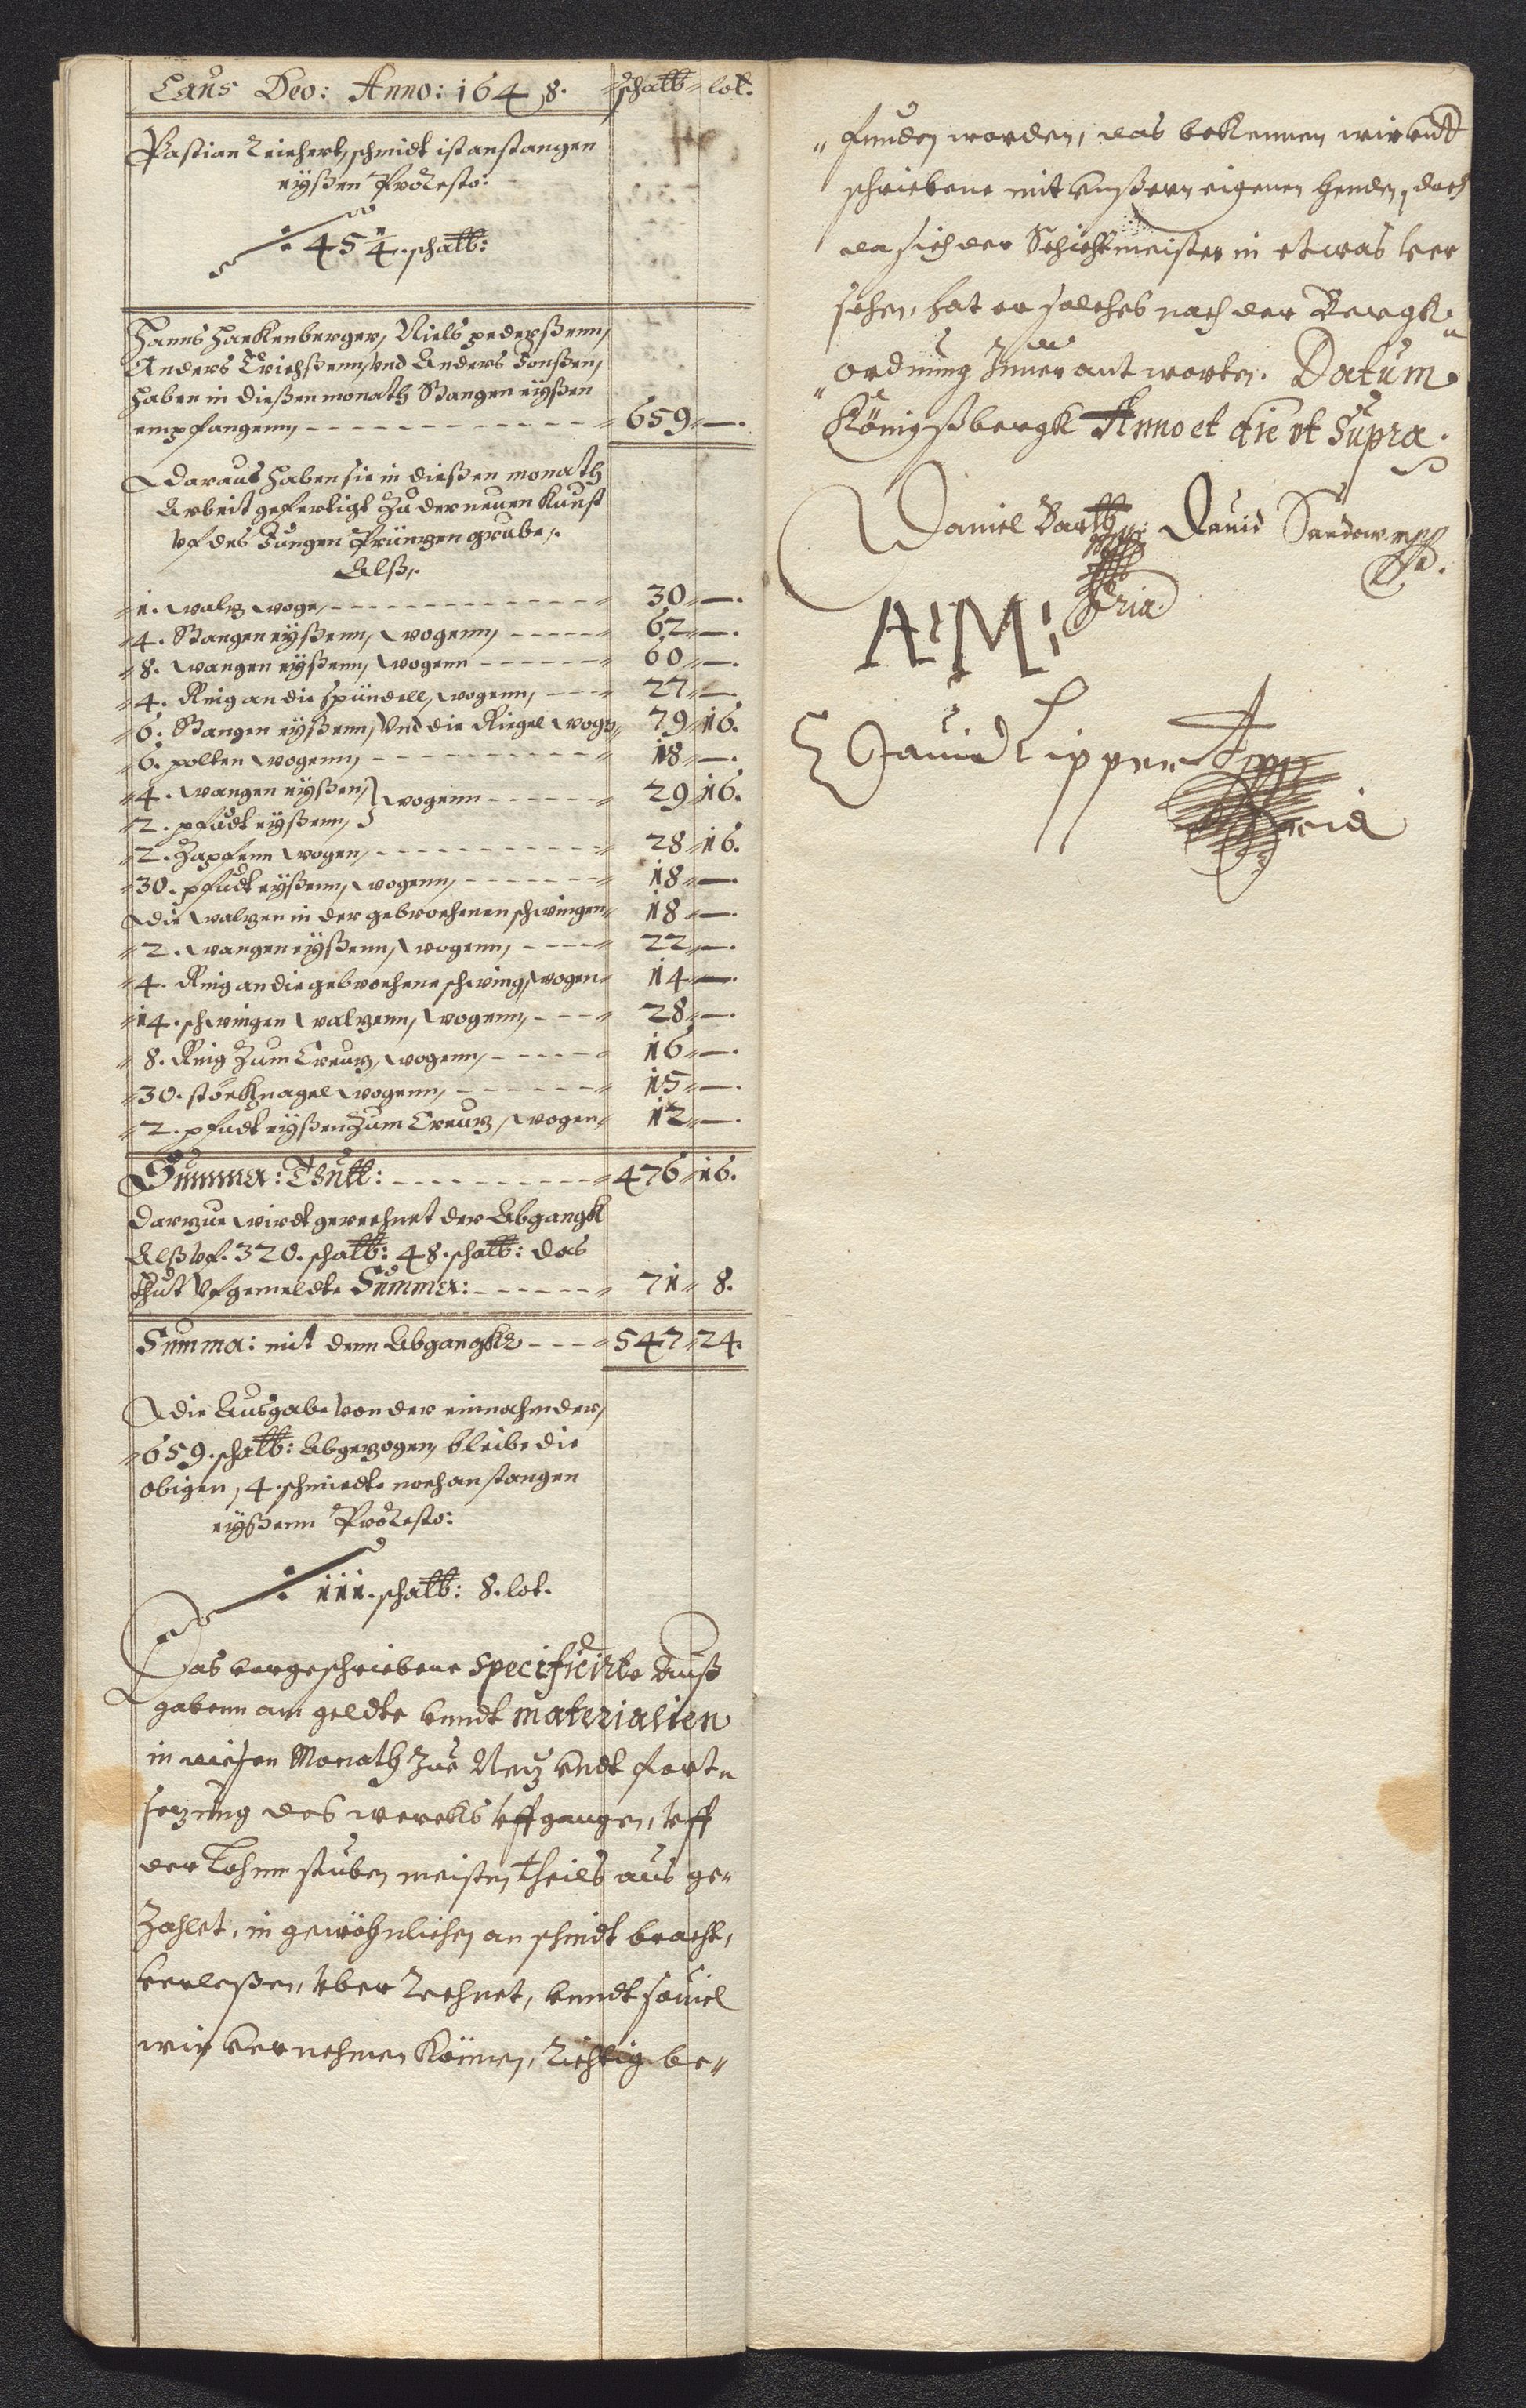 Laus Deo: Anno: 1648. schalb lot.
Pastian Reichert, schmidt ist an stangen
eyßen Pro Resto:
45 1/4. schalb:
Hanns Hackenberger, Niels pederßenn,
Anders Erichßenn, vnd Anders Jonßen,
haben in dießen monath Stangen eyßen
empfangenn, 659 —.
Daraus haben sie in dießen monath
Arbeit gefertigt Zu der neuen Kunst
vf des Jungen Printzen grube,.
Alß,.
1. waltz woge, 30 —.
4. Stangen eyßenn, wogenn, 62 —.
8. wangen eyßenn, wogenn 60 —.
4. Ring an die Spündell, wogenn, 27 —.
6. Stangen eyßenn, Vnd die Riegel wogn, 79 16.
6. polten wogenn, 18 —.
4. wangen eyßen, } wogenn 29 16.
2. pfadt eyßenn, }
2. Zapfenn wogen, 28 16.
30. pfadt eyßenn, wogenn, 18 —.
die waltzen in der gebrochenen schwingen 18 —.
2. wangen eyßenn, wogenn, 22 —.
4. Ring an die gebrochene schwing, wogen 14 —.
14. schwingen waltzenn, wogenn, 28 —.
8. Ring Zum Creutz, wogenn, 16 —.
30. storcknagel wogenn, 15 —.
2. pfadt eyßen Zum Creutz, wogen 12 —.
Summa: Thutt: 476 16.
Dartzue wirdt gerechnet der Abgangk
Alß vf. 320. schalb: 48. schalb: das
thut Vfgemeldte Summa: 71 8.
Summa: mit dem Abgangke 547 24.
die Ausgabe von der einnahm der,
659. schalb: Abgetzogen, bleibe die
obigen, 4. schmiedte noch an stangen
eyßenn Pro Resto:
111. schalb: 8. lot.
Das vorgeschriebene specificirte Auß
gabenn am geldte vnndt materialien
in diesen Monath Zur Netz vndt fort„
setzung des wercks vffgangen, vff
der Lohnn stuben meisten theils aus ge„
Zahlet, in gewöhnlichen an schnidt bracht,
verleßen, vber Rechnet, vnndt souiel
wir vernehmen können, Richtig be„
„funden worden, das bekennen wir vnt
schriebene mit vnßern eigenen henden, doch
da sich der Schichtmeister in etwas ver
sehen, hat er solches nach der Bergk„
„ordnung Zuuerantworten. Datum
Königßbergk Anno et die vt Supra.
Daniel Barth David Sandow. mpp
A: M:
David Lippert mpp